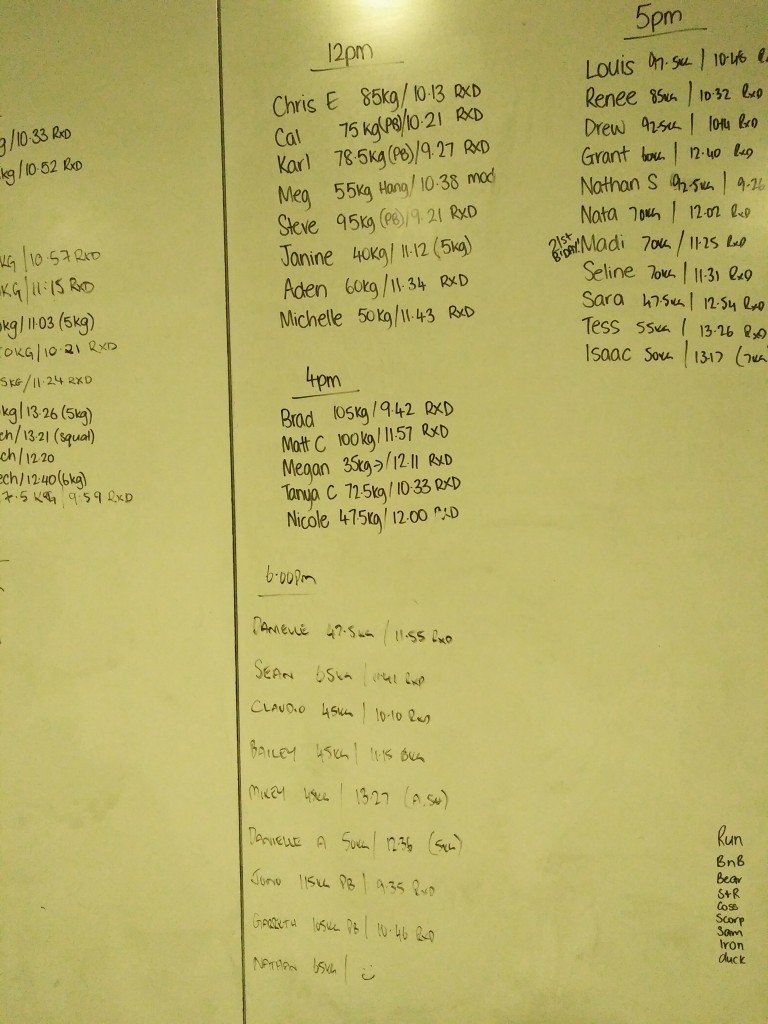 g/10.33 RXD
kg/10.52 RXD
KG/10.57 RXD
KG/11:15 RXD
kg/11.03 (5kg)
0KG/10.21 RXD
5KG/11.24 RXD
kg/13.26 (5kg)
ch/13.21 (squat)
ch/12.20
ech/12.40 (6kg)
7.5 KG/9.59 RXD
12pm
Chris E 85kg/10.13 RXD
Cal 75kg(PB)/10.21 RXD
Karl 78.5kg(PB)/9.27 RXD
Meg 55kg Hang/10.38 mod
Steve 95kg(PB)/9.21 RXD
Janine 40kg/11.12 (5kg)
Aden 60kg/11.34 RXD
Michelle 50kg/11.43 RXD
4pm
Brad 105kg/9.42 RXD
Matt C 100kg/11.57 RXD
Megan 35kg→/12.11 RXD
Tanya C 72.5kg/10.33 RXD
Nicole 47.5kg/12.00 RXD
6.00pm
DANIELLE 47.5KG/11.55 RXD
SEAN 65KG/11.41 RXD
CLAUDIO 45KG/10.10 RXD
BAILEY 45KG/11.15 8KG
MIKEY 45KG/13.27
DANIELLE A 50KG/12.36 (5KG)
JONO 115KG PB/9.35 RXD
GARRETH 105KG PB/10.46 RXD
NATHAN 65KG/ :)
5pm
Louis 97.5KG/10.46
Renee 85KG/10.32 RXD
Drew 92.5KG/10.14 RXD
Grant 60KG/12.40 RXD
Nathan S 92.5KG/9.26
Nata 70KG/12.02 RXD
21st BIDAY! Madi 70KG/11.25 RXD
Seline 70KG/11.31 RXD
Sara 47.5KG/12.54 RXD
Tess 55KG/13.26 RXD
Isaac 50KG/13.17 (7KG
Run
BnB
Bear
S+R
Coss
Scorp
Sam
Iron
duck